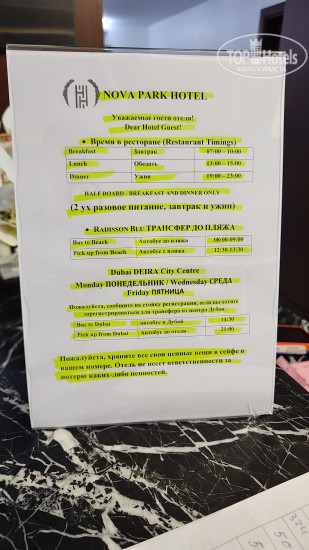 TopHotels
ФОТО ТУРИСТОВ
NOVA PARK HOTEL
Уважаемые гости отели!
Dear Hotel Guest!
• Время в ресторане (Restaurant Timings)
Breakfast Завтрак 07:00 – 10:00
Lunch Обедать 13:00 – 15:00
Dinner Ужин 19:00 – 23:00
HALF BOARD - BREAKFAST AND DINNER ONLY
(2 ух разовое питание, завтрак и ужин)
• RADISSON BLU ТРАНСФЕР ДО ПЛЯЖА
Bus to Beach Автобус до пляжа 08:00-09:00
Pick up from Beach Автобус с пляжа 12:30-13:30
Dubai DEIRA City Centre
Monday ПОНЕДЕЛЬНИК / Wednesday СРЕДА
Friday ПЯТНИЦА
Пожалуйста, сообщите на стойку регистрации, если вы хотите
зарегистрироваться для трансфера из центра Дубая
Bus to Dubai автобус в Дубай 14:30
Pick up from Dubai Автобус до отели 21:00
Пожалуйста, храните все свои ценные вещи в сейфе в
вашем номере. Отель не несет ответственности за
потерю каких-либо ценностей.
324
50
50